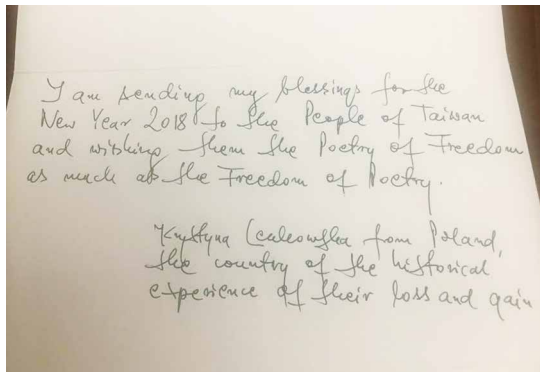 I am sending my blessings for the
New Year 2018 to the People of Taiwan
and wishing them the Poetry of Freedom
as much as the Freedom of Poetry.
Krystyna Lenkowska from Poland,
the country of the historical
experience of their loss and gain